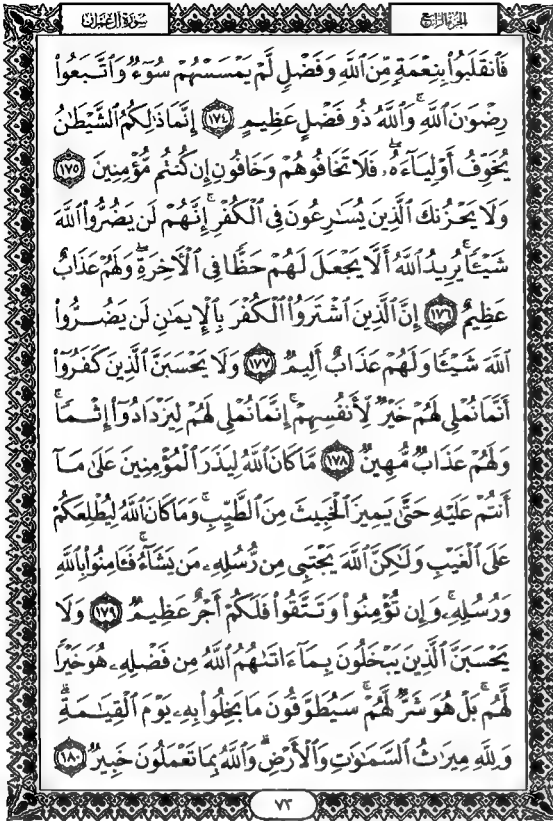 سورة آل عمران
الجزء الرابع
فَٱنقَلَبُوا۟ بِنِعْمَةٍ مِّنَ ٱللَّهِ وَفَضْلٍ لَّمْ يَمْسَسْهُمْ سُوٓءٌ وَٱتَّبَعُوا۟
رِضْوَٰنَ ٱللَّهِ ۗ وَٱللَّهُ ذُو فَضْلٍ عَظِيمٍ ١٧٤ إِنَّمَا ذَٰلِكُمُ ٱلشَّيْطَٰنُ
يُخَوِّفُ أَوْلِيَآءَهُۥ فَلَا تَخَافُوهُمْ وَخَافُونِ إِن كُنتُم مُّؤْمِنِينَ ١٧٥
وَلَا يَحْزُنكَ ٱلَّذِينَ يُسَٰرِعُونَ فِى ٱلْكُفْرِ ۚ إِنَّهُمْ لَن يَضُرُّوا۟ ٱللَّهَ
شَيْـًٔا ۗ يُرِيدُ ٱللَّهُ أَلَّا يَجْعَلَ لَهُمْ حَظًّا فِى ٱلْءَاخِرَةِ ۖ وَلَهُمْ عَذَابٌ
عَظِيمٌ ١٧٦ إِنَّ ٱلَّذِينَ ٱشْتَرَوُا۟ ٱلْكُفْرَ بِٱلْإِيمَٰنِ لَن يَضُرُّوا۟
ٱللَّهَ شَيْـًٔا وَلَهُمْ عَذَابٌ أَلِيمٌ ١٧٧ وَلَا يَحْسَبَنَّ ٱلَّذِينَ كَفَرُوٓا۟
أَنَّمَا نُمْلِى لَهُمْ خَيْرٌ لِّأَنفُسِهِمْ ۚ إِنَّمَا نُمْلِى لَهُمْ لِيَزْدَادُوٓا۟ إِثْمًا ۚ
وَلَهُمْ عَذَابٌ مُّهِينٌ ١٧٨ مَّا كَانَ ٱللَّهُ لِيَذَرَ ٱلْمُؤْمِنِينَ عَلَىٰ مَآ
أَنتُمْ عَلَيْهِ حَتَّىٰ يَمِيزَ ٱلْخَبِيثَ مِنَ ٱلطَّيِّبِ ۗ وَمَا كَانَ ٱللَّهُ لِيُطْلِعَكُمْ
عَلَى ٱلْغَيْبِ وَلَٰكِنَّ ٱللَّهَ يَجْتَبِى مِن رُّسُلِهِۦ مَن يَشَآءُ ۖ فَـَٔامِنُوا۟ بِٱللَّهِ
وَرُسُلِهِۦ ۚ وَإِن تُؤْمِنُوا۟ وَتَتَّقُوا۟ فَلَكُمْ أَجْرٌ عَظِيمٌ ١٧٩ وَلَا
يَحْسَبَنَّ ٱلَّذِينَ يَبْخَلُونَ بِمَآ ءَاتَىٰهُمُ ٱللَّهُ مِن فَضْلِهِۦ هُوَ خَيْرًا
لَّهُم ۖ بَلْ هُوَ شَرٌّ لَّهُمْ ۖ سَيُطَوَّقُونَ مَا بَخِلُوا۟ بِهِۦ يَوْمَ ٱلْقِيَٰمَةِ ۗ
وَلِلَّهِ مِيرَٰثُ ٱلسَّمَٰوَٰتِ وَٱلْأَرْضِ ۗ وَٱللَّهُ بِمَا تَعْمَلُونَ خَبِيرٌ ١٨٠
٧٣